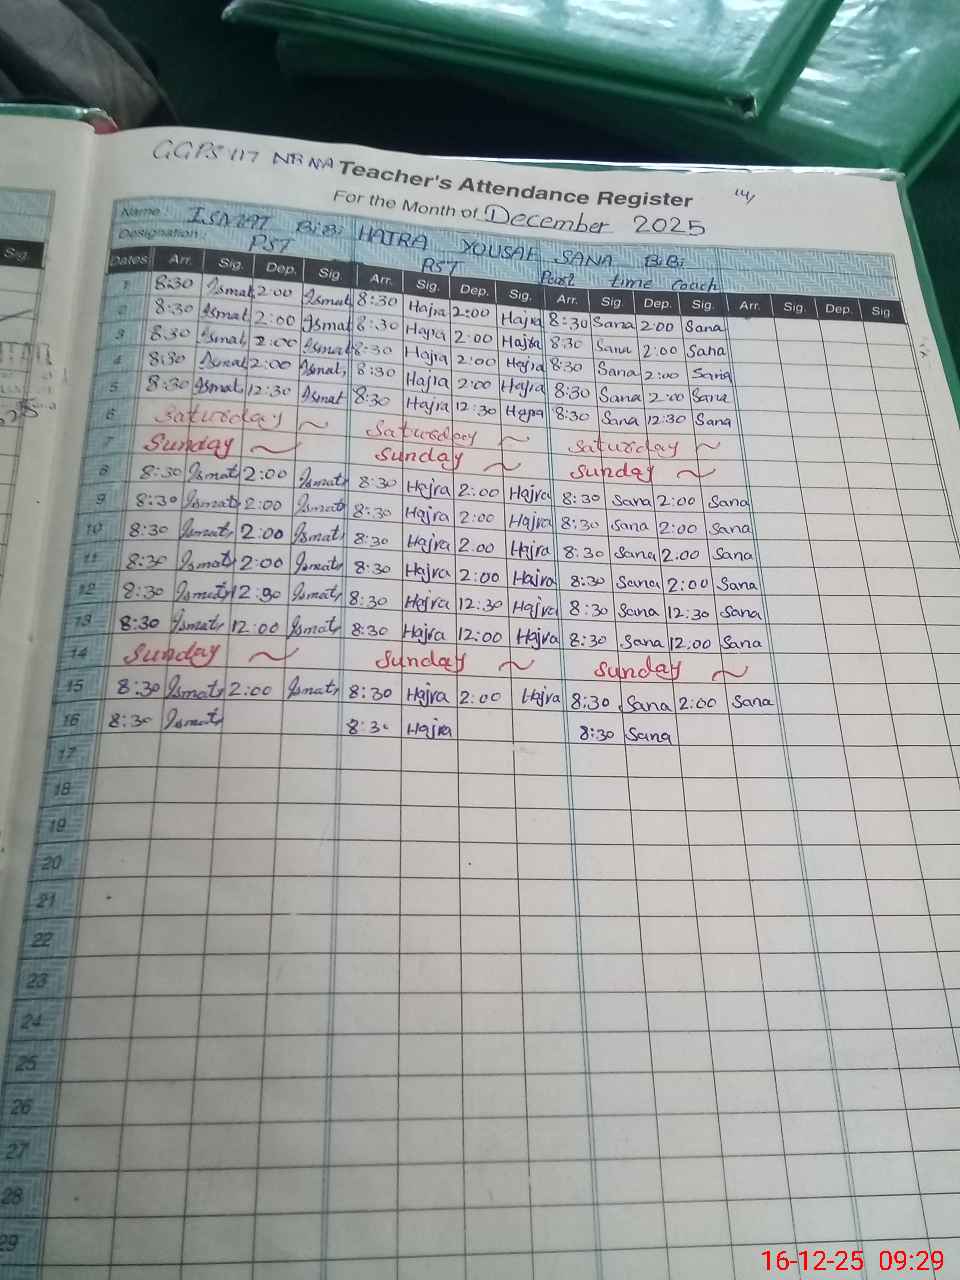 GGPS 117 NB NA Teacher's Attendance Register
For the Month of December 2025
Name: ISMAT BiBi HAJRA YOUSAF SANA BiBi
Designation: PST PST Part time coach
Sig.
Dates Arr. Sig. Dep. Sig. Arr. Sig. Dep. Sig. Arr. Sig. Dep. Sig. Arr. Sig. Dep. Sig.
1 8:30 Ismat 2:00 Ismat 8:30 Hajra 2:00 Hajra 8:30 Sana 2:00 Sana
2 8:30 Ismat 2:00 Ismat 8:30 Hajra 2:00 Hajra 8:30 Sana 2:00 Sana
3 8:30 Ismat 2:00 Ismat 8:30 Hajra 2:00 Hajra 8:30 Sana 2:00 Sana
4 8:30 Ismat 2:00 Ismat 8:30 Hajra 2:00 Hajra 8:30 Sana 2:00 Sana
5 8:30 Ismat 12:30 Ismat 8:30 Hajra 12:30 Hajra 8:30 Sana 12:30 Sana
6 Saturday ~ Saturday ~ Saturday ~
7 Sunday ~ Sunday ~ Sunday ~
8 8:30 Ismat 2:00 Ismat 8:30 Hajra 2:00 Hajra 8:30 Sana 2:00 Sana
9 8:30 Ismat 2:00 Ismat 8:30 Hajra 2:00 Hajra 8:30 Sana 2:00 Sana
10 8:30 Ismat 2:00 Ismat 8:30 Hajra 2:00 Hajra 8:30 Sana 2:00 Sana
11 8:30 Ismat 2:00 Ismat 8:30 Hajra 2:00 Hajra 8:30 Sana 2:00 Sana
12 8:30 Ismat 12:30 Ismat 8:30 Hajra 12:30 Hajra 8:30 Sana 12:30 Sana
13 8:30 Ismat 12:00 Ismat 8:30 Hajra 12:00 Hajra 8:30 Sana 12:00 Sana
14 Sunday ~ Sunday ~ Sunday ~
15 8:30 Ismat 2:00 Ismat 8:30 Hajra 2:00 Hajra 8:30 Sana 2:00 Sana
16 8:30 Ismat 8:30 Hajra 8:30 Sana
17
18
19
20
21
22
23
24
25
26
27
28
29
16-12-25 09:29